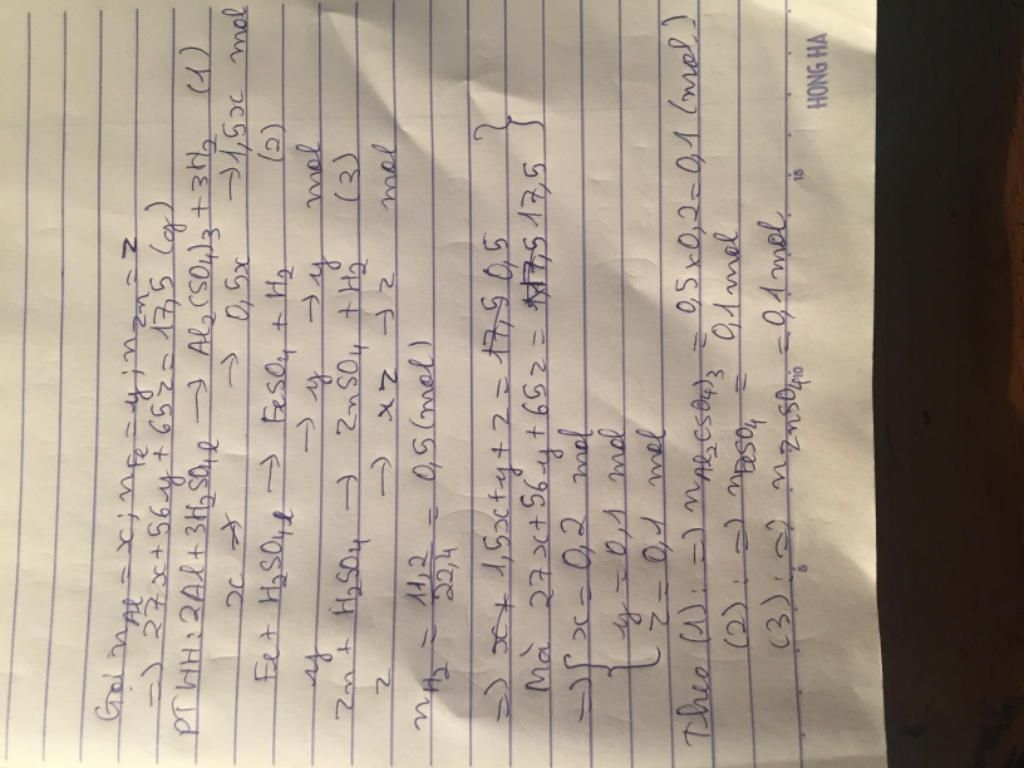 Gọi nAl = x; nFe = y; nZn = z
=> 27x + 56y + 65z = 17,5 (g)
PTHH: 2Al + 3H2SO4l → Al2(SO4)3 + 3H2 (1)
x → → 0,5x → 1,5x mol
Fe + H2SO4l → FeSO4 + H2 (2)
y → y → y mol
Zn + H2SO4 → ZnSO4 + H2 (3)
z → x z → z mol
nH2 = 11,2/22,4 = 0,5 (mol)
=> x + 1,5x + y + z = 17,5 0,5 }
Mà 27x + 56y + 65z = 17,5 17,5 }
=> { x = 0,2 mol
{ y = 0,1 mol
{ z = 0,1 mol
Theo (1): => nAl2(SO4)3 = 0,5 x 0,2 = 0,1 (mol)
(2): => nFeSO4 = 0,1 mol
(3): => nZnSO4 = 0,1 mol
5 10 15
HONG HA